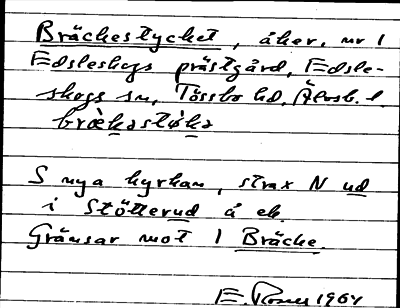 Bräckestycket, åker, nr 1
Edsleskogs prästgård, Edsle-
skogs sn, Tössbo hd, Älvsb. l.
bræ̀kastøka
S nya kyrkan, strax N ud
i Stötterud å ek.
Gränsar mot 1 Bräcke.
E. 1964